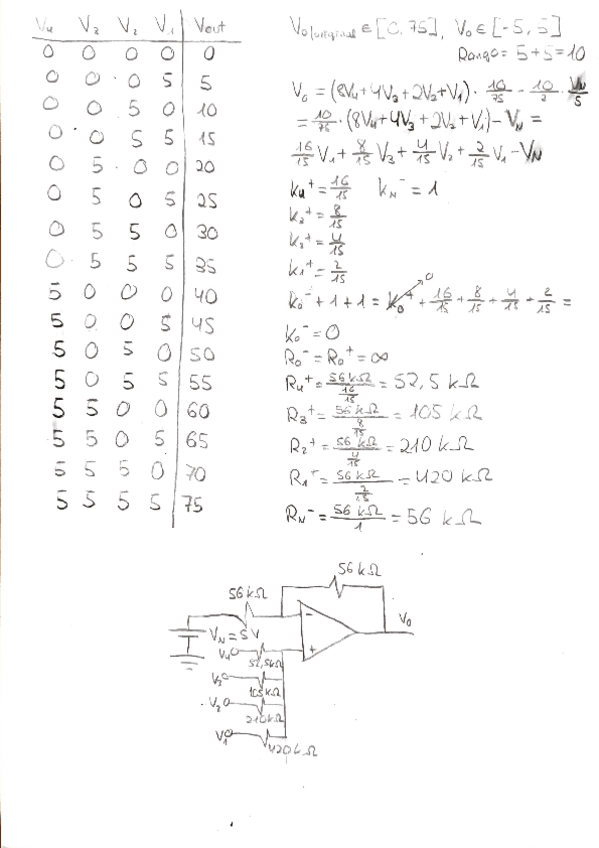 V4 V3 V2 V1 Vout
0 0 0 0 0
0 0 0 5 5
0 0 5 0 10
0 0 5 5 15
0 5 0 0 20
0 5 0 5 25
0 5 5 0 30
0 5 5 5 35
5 0 0 0 40
5 0 0 5 45
5 0 5 0 50
5 0 5 5 55
5 5 0 0 60
5 5 0 5 65
5 5 5 0 70
5 5 5 5 75
Vo|original ∈ [0, 75], Vo ∈ [-5, 5]
Rango = 5+5=10
Vo = (8V4+4V3+2V2+V1) · 10/75 - 10/2 · VN/5
= 10/75 · (8V4+4V3+2V2+V1) - VN =
16/15 V1 + 8/15 V3 + 4/15 V2 + 2/15 V1 - VN
k4+ = 16/15 kN- = 1
k2+ = 8/15
k2+ = 4/15
k1+ = 2/15
k0- + 1 + 1 = k0+ + 16/15 + 8/15 + 4/15 + 2/15 =
0
k0- = 0
R0- = R0+ = ∞
R4+ = 56 kΩ / 16/15 = 52,5 kΩ
R3+ = 56 kΩ / 8/15 = 105 kΩ
R2+ = 56 kΩ / 4/15 = 210 kΩ
R1+ = 56 kΩ / 2/15 = 420 kΩ
RN- = 56 kΩ / 1 = 56 kΩ
56 kΩ
56 kΩ
-
Vo
VN = 5V
+
V4
52,5kΩ
V3
105kΩ
V2
210kΩ
V1
420kΩ